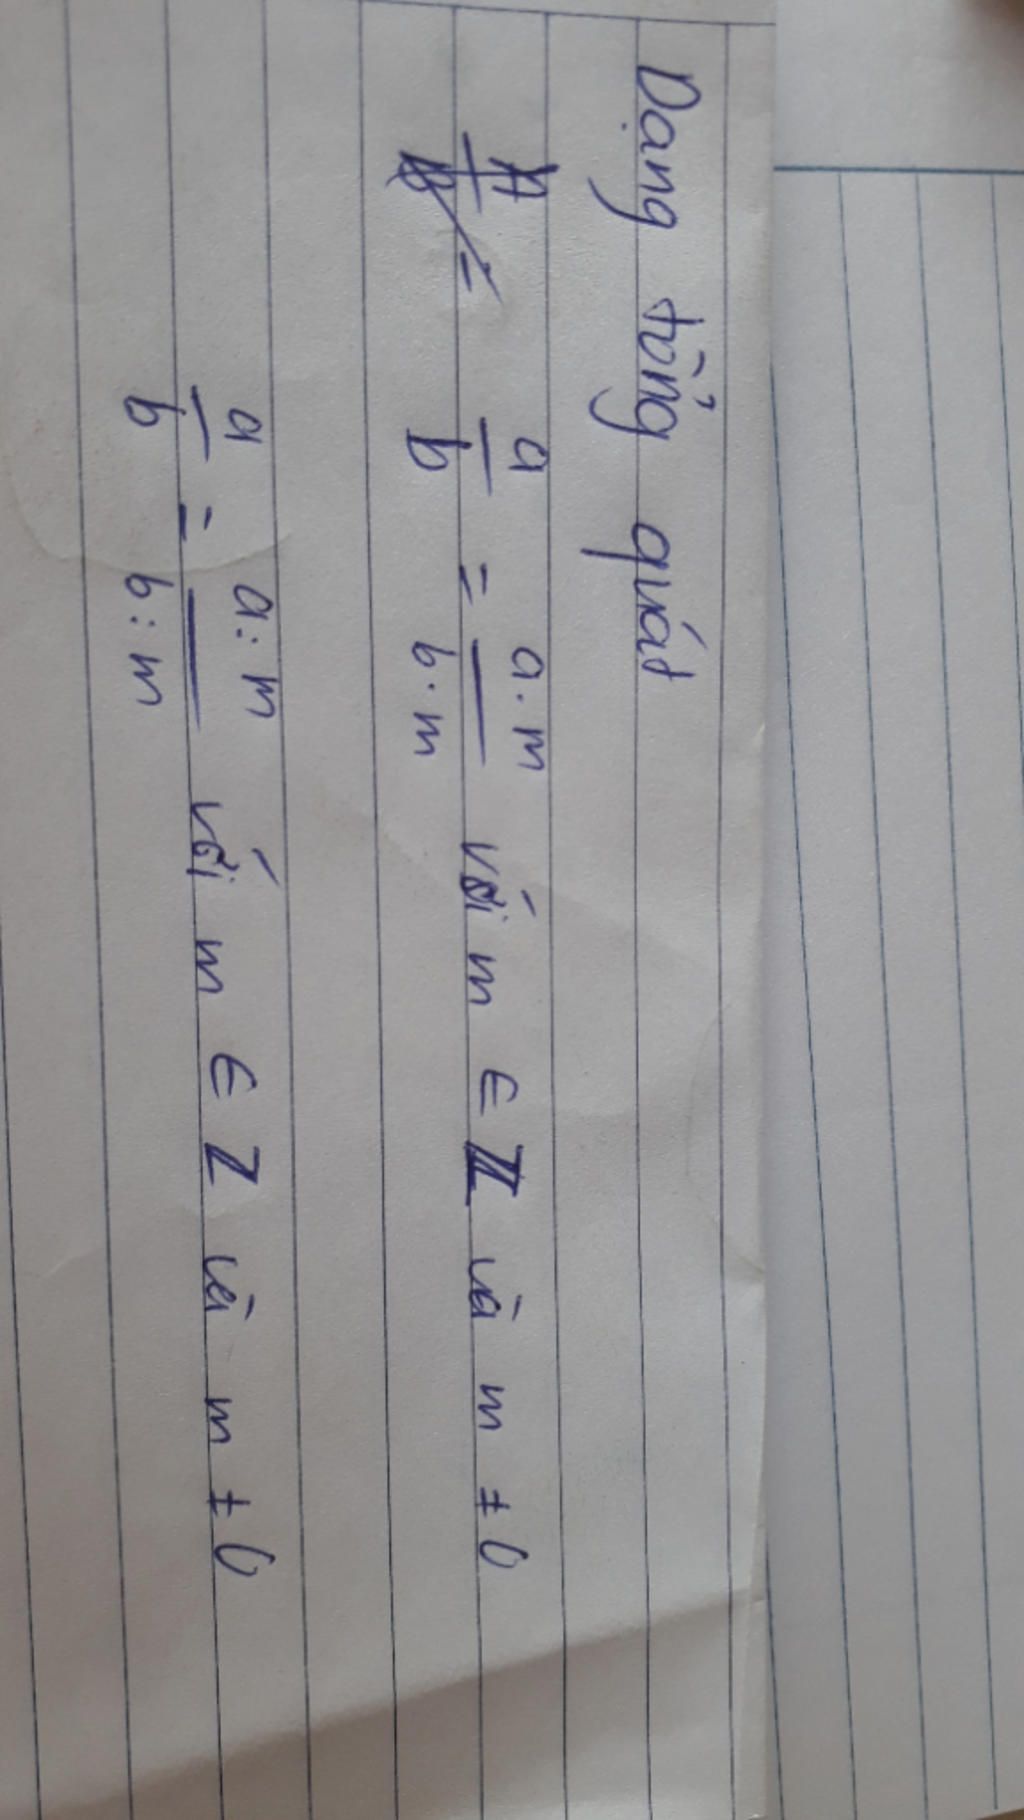 Dạng tổng quát
a/b = a.m/b.m với m ∈ Z và m ≠ 0
a/b = a:m/b:m với m ∈ Z và m ≠ 0